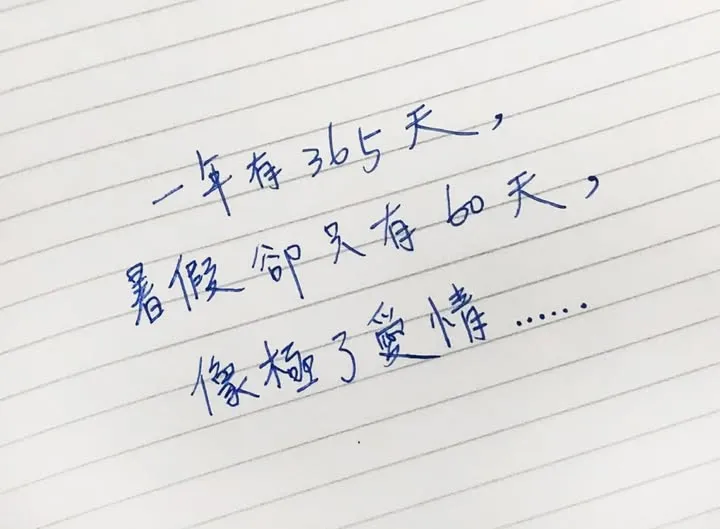 一年有365天，
暑假卻只有60天，
像極了愛情……